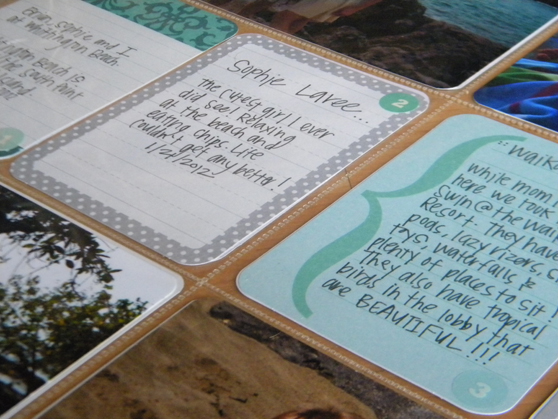 Evan, Sophie and I
at Washington Beach.
Beach is
the South Point
Island
Sophie Laree...
2
the cutest girl I ever
did see! Relaxing
at the beach and
eating chips. Life
couldn't get any better!
1/29/2012
while mom
here we took
Swim @ the
Resort. They have
pools, lazy rivers, s
tys, waterfalls &
plenty of places to sit
They also have tropical
birds in the lobby that
are BEAUTIFUL!!!
3